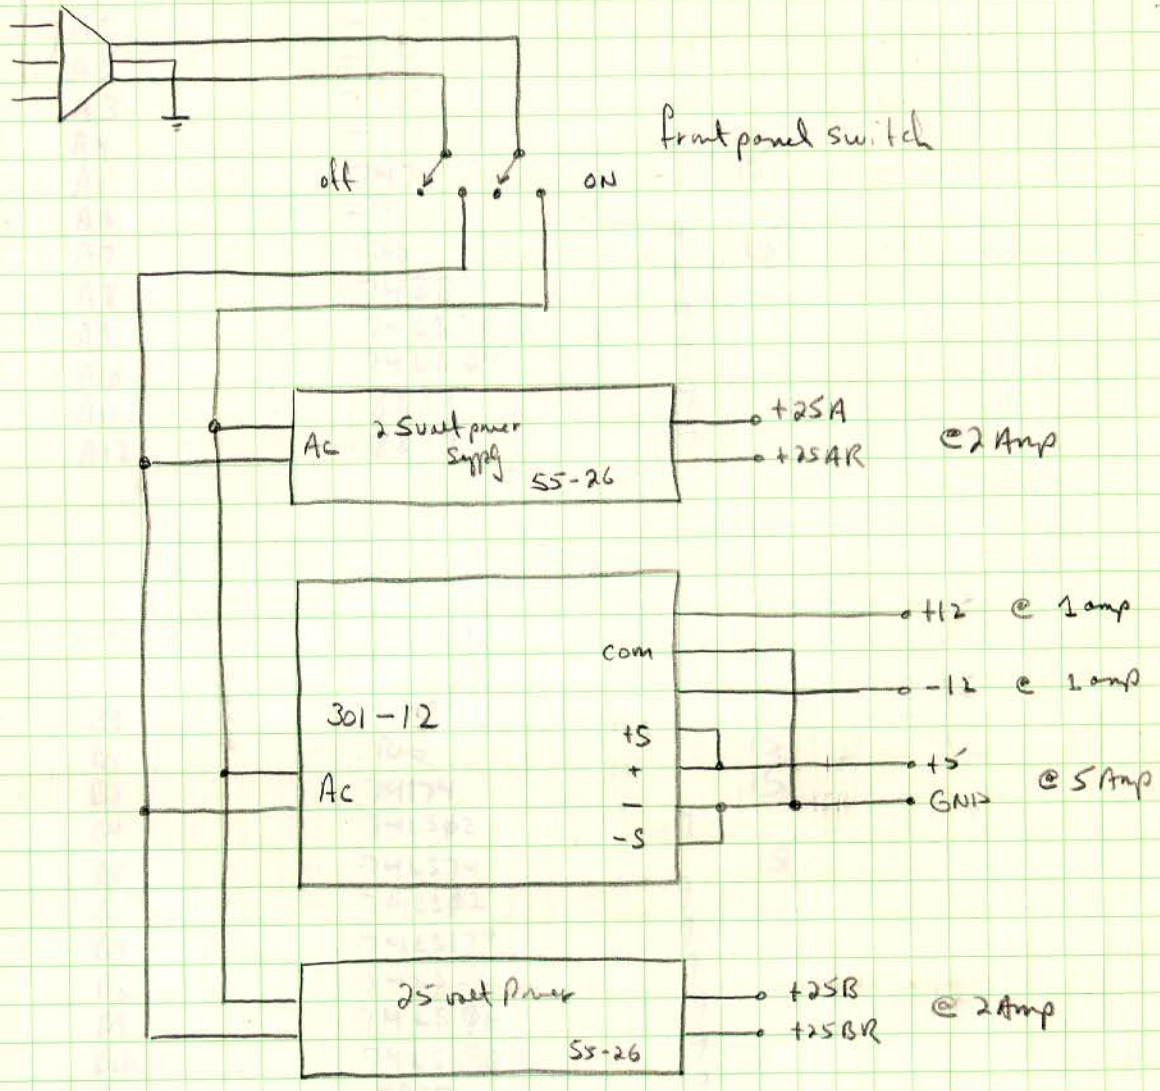 front panel switch
off
ON
Ac
25 volt power
supply
55-26
+25A
+25AR
@ 2 Amp
+12 @ 1 amp
com
-12 @ 1 amp
301-12
+S
+
+5
Ac
@ 5 Amp
-
GND
-S
25 volt Power
55-26
+25B
+25BR
@ 2 Amp